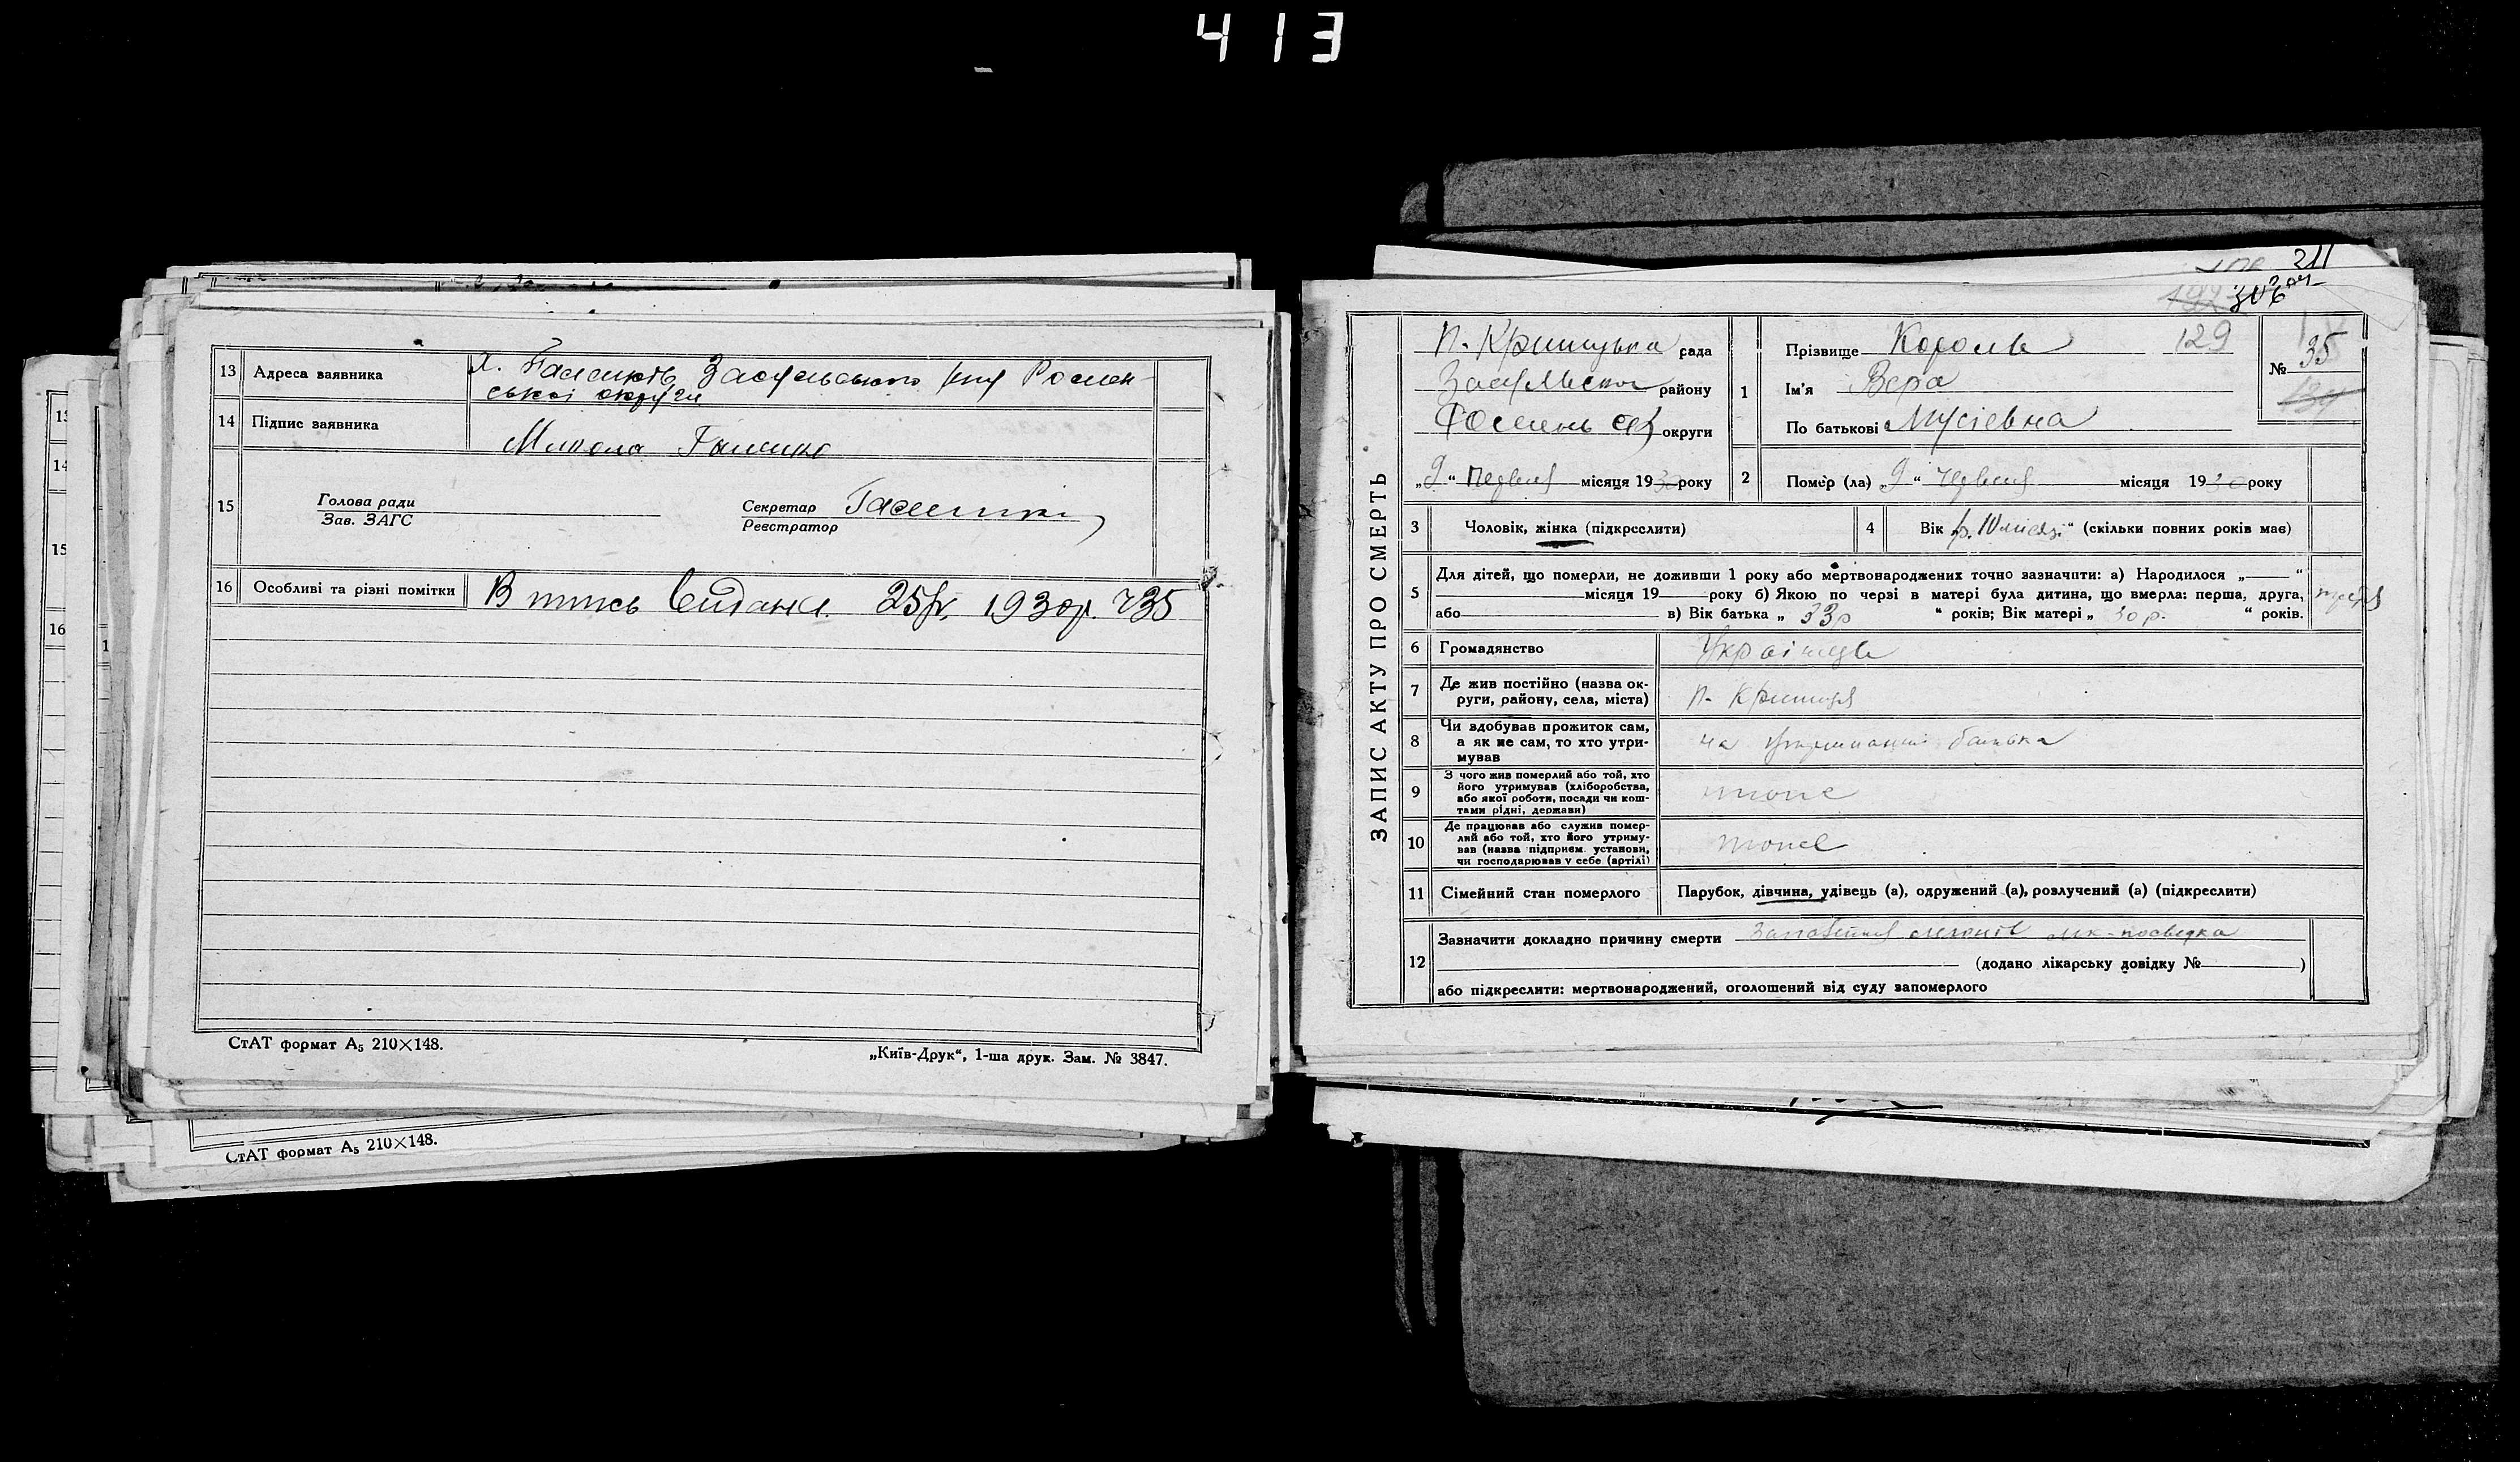 413
13 Адреса заявника Х. Галенків Засульського р-ну Ромен-
ської округи
14 Підпис заявника
Микола
15 Голова ради
Зав. ЗАГС
Секретар
Реєстратор
16 Особливі та різні помітки В тпись видана 25/V 1930р. 735
СтАТ формат А5 210×148.
„Київ-Друк“, 1-ша друк. Зам. № 3847.
СтАТ формат А5 210×148.
211
306
ЗАПИС АКТУ ПРО СМЕРТЬ
рада
району
округи
„9“ червня місяця 1930 року
1 Прізвище Король 129
Ім'я Вера
По батькові Мусіевна
№ 35
2 Помер (ла) „9“ червня місяця 1930 року
3 Чоловік, жінка (підкреслити)
4 Вік „р. 10 місяц.“ (скільки повних років має)
5 Для дітей, що померли, не доживши 1 року або мертвонароджених точно зазначити: а) Народилося „ “
місяця 19 року б) Якою по черзі в матері була дитина, що вмерла: перша, друга, третя
або в) Вік батька „ 33р “ років; Вік матері „ 30 р. “ років.
6 Громадянство Українець
7 Де жив постійно (назва ок-
руги, району, села, міста)
8 Чи здобував прожиток сам,
а як не сам, то хто утри-
мував
на утриманні батька
9 З чого жив померлий або той, хто
його утримував (хліборобства,
або якої роботи, посади чи кош-
тами рідні, держави)
тоже
10 Де працював або служив помер-
лий або той, хто його утриму-
вав (назва підприєм. установи,
чи господарював у себе (артілі)
тоже
11 Сімейний стан померлого Парубок, дівчина, удівець (а), одружений (а), розлучений (а) (підкреслити)
12 Зазначити докладно причину смерти Запалення легенів
(додано лікарську довідку № )
або підкреслити: мертвонароджений, оголошений від суду запомерлого